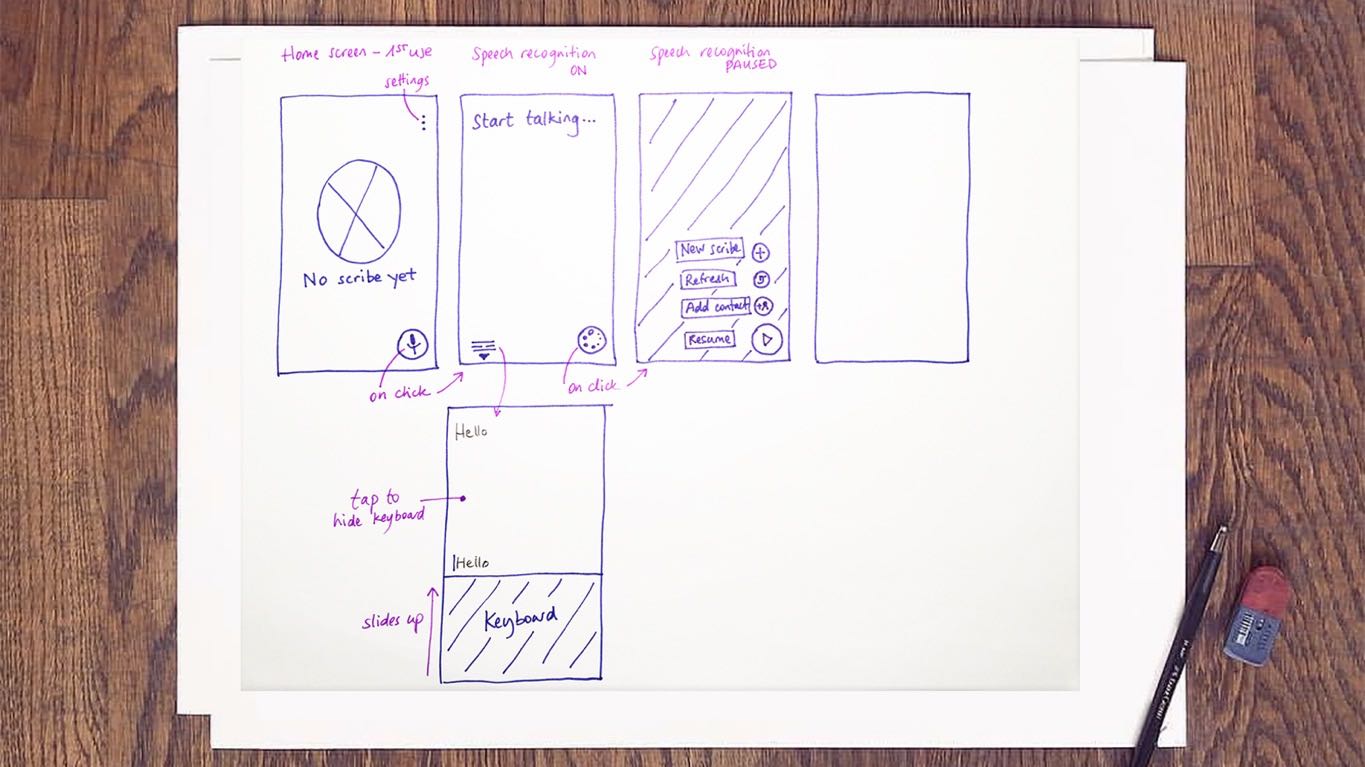 Home screen - 1ST use
settings
No scribe yet
on click
Speech recognition
ON
Start talking...
on click
Speech recognition
PAUSED
New scribe
Refresh
Add contact
Resume
Hello
tap to
hide keyboard
Hello
slides up
Keyboard